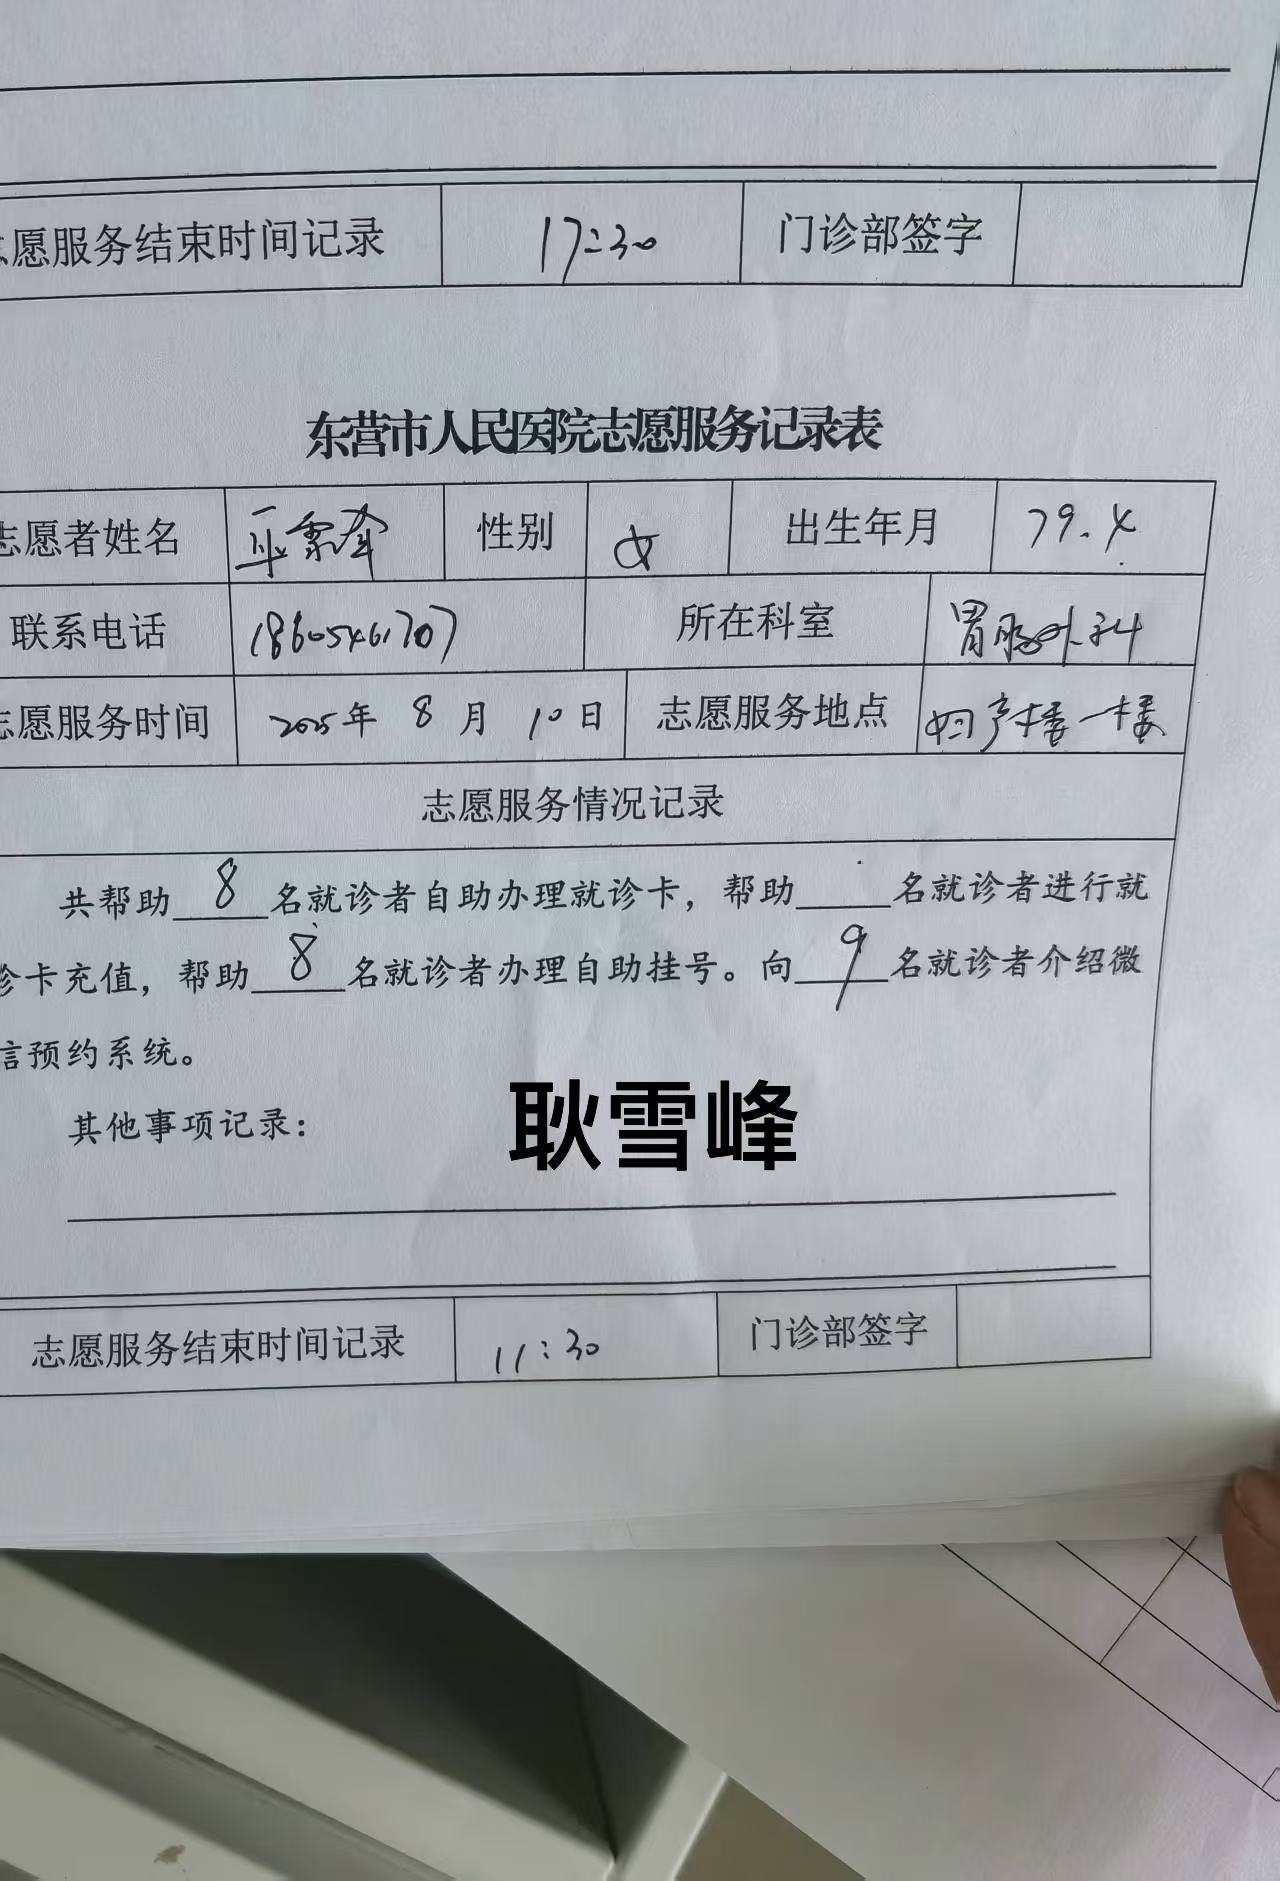 愿服务结束时间记录 17:30 门诊部签字
东营市人民医院志愿服务记录表
志愿者姓名 性别 女 出生年月 79.4
联系电话 18605461707 所在科室 胃肠外科
志愿服务时间 2025年 8 月 10 日 志愿服务地点 妇产楼一楼
志愿服务情况记录
共帮助 8 名就诊者自助办理就诊卡，帮助____名就诊者进行就
诊卡充值，帮助 8 名就诊者办理自助挂号。向 9 名就诊者介绍微
信预约系统。
耿雪峰
其他事项记录：
志愿服务结束时间记录 11:30 门诊部签字